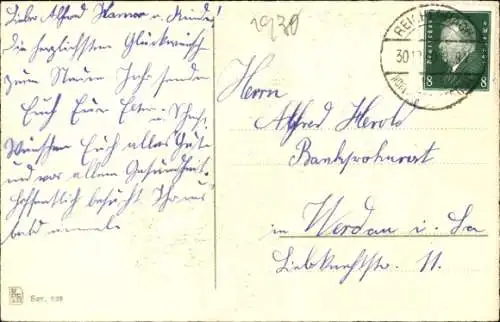 Liebe Alfred Hanna u. Kinder!
die herzlichsten Glückwünsche
zum Neuen Jahr senden
Euch Eure Eltern u.
Wünschen Euch alles Gute
und vor allem Gesundheit.
Hoffentlich besucht Ihr uns
bald einmal.
1930
REICH
30.12
Deutsches Reich
8 8
Herrn
Alfred Herold
Bankprokurist
in Werdau i. Sa
Liebknechtstr. 11.
Ser. 535